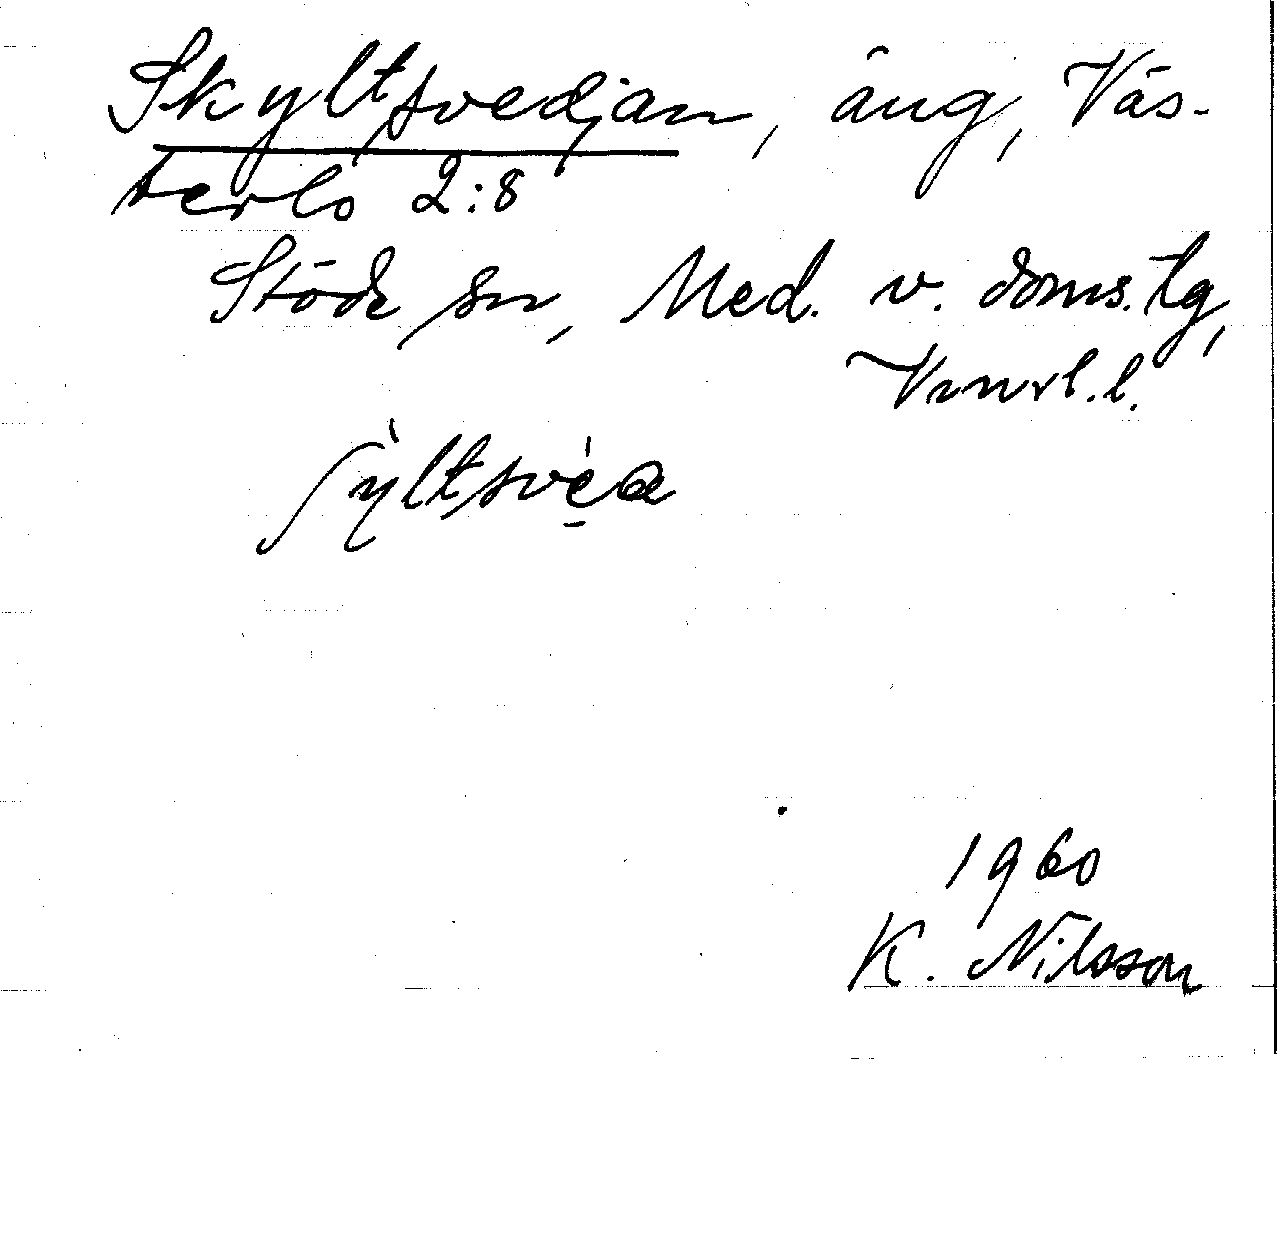 Skyltsvedjan, äng, Väs-
terlo 2:8
Stöde sn, Med. v. doms. tg,
Vnrl. l.
ʃỳltsvéa
1960
K. Nilsson